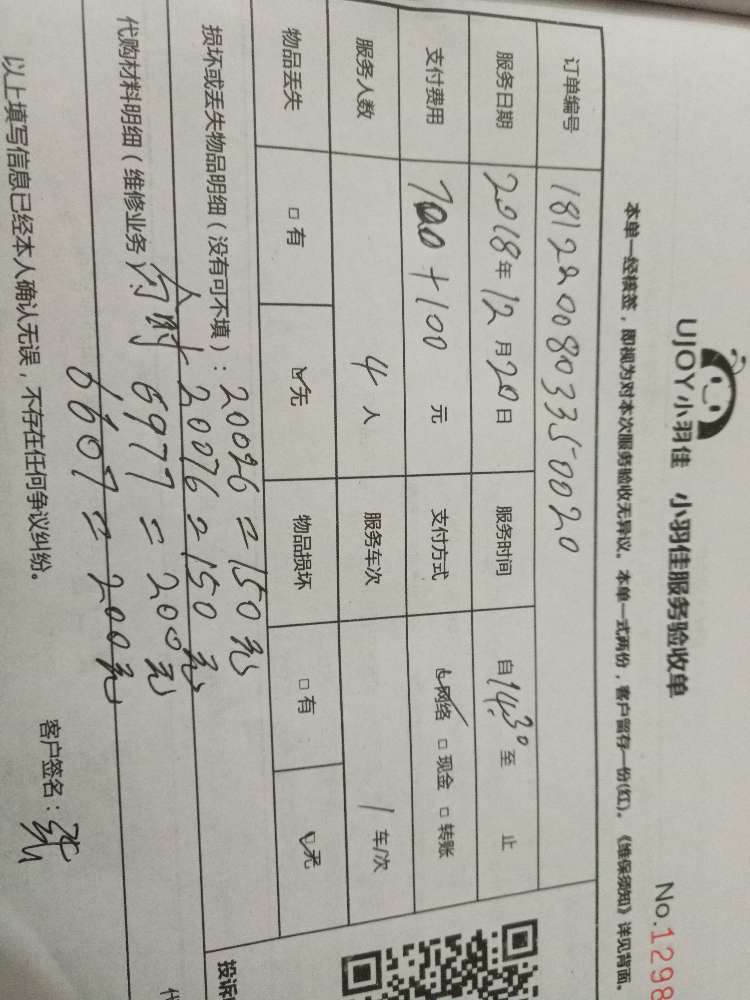 UJOY小羽佳 小羽佳服务验收单
No.1298
本单一经核签，即视为对本次服务验收无异议。本单一式两份，客户留存一份(红)。《维保须知》详见背面。
订单编号 1812200803350020
服务日期 2018年12月20日 服务时间 自14.30至 止
支付费用 700+100元 支付方式 ☑网络 □现金 □转账
服务人数 4人 服务车次 1车/次
物品丢失 □有 ☑无 物品损坏 □有 ☑无
损坏或丢失物品明细（没有可不填）：20026=150元
20076=150元
代购材料明细（维修业务） 6977=200元
6607=200元
以上填写信息已经本人确认无误，不存在任何争议纠纷。
客户签名：
投诉
代